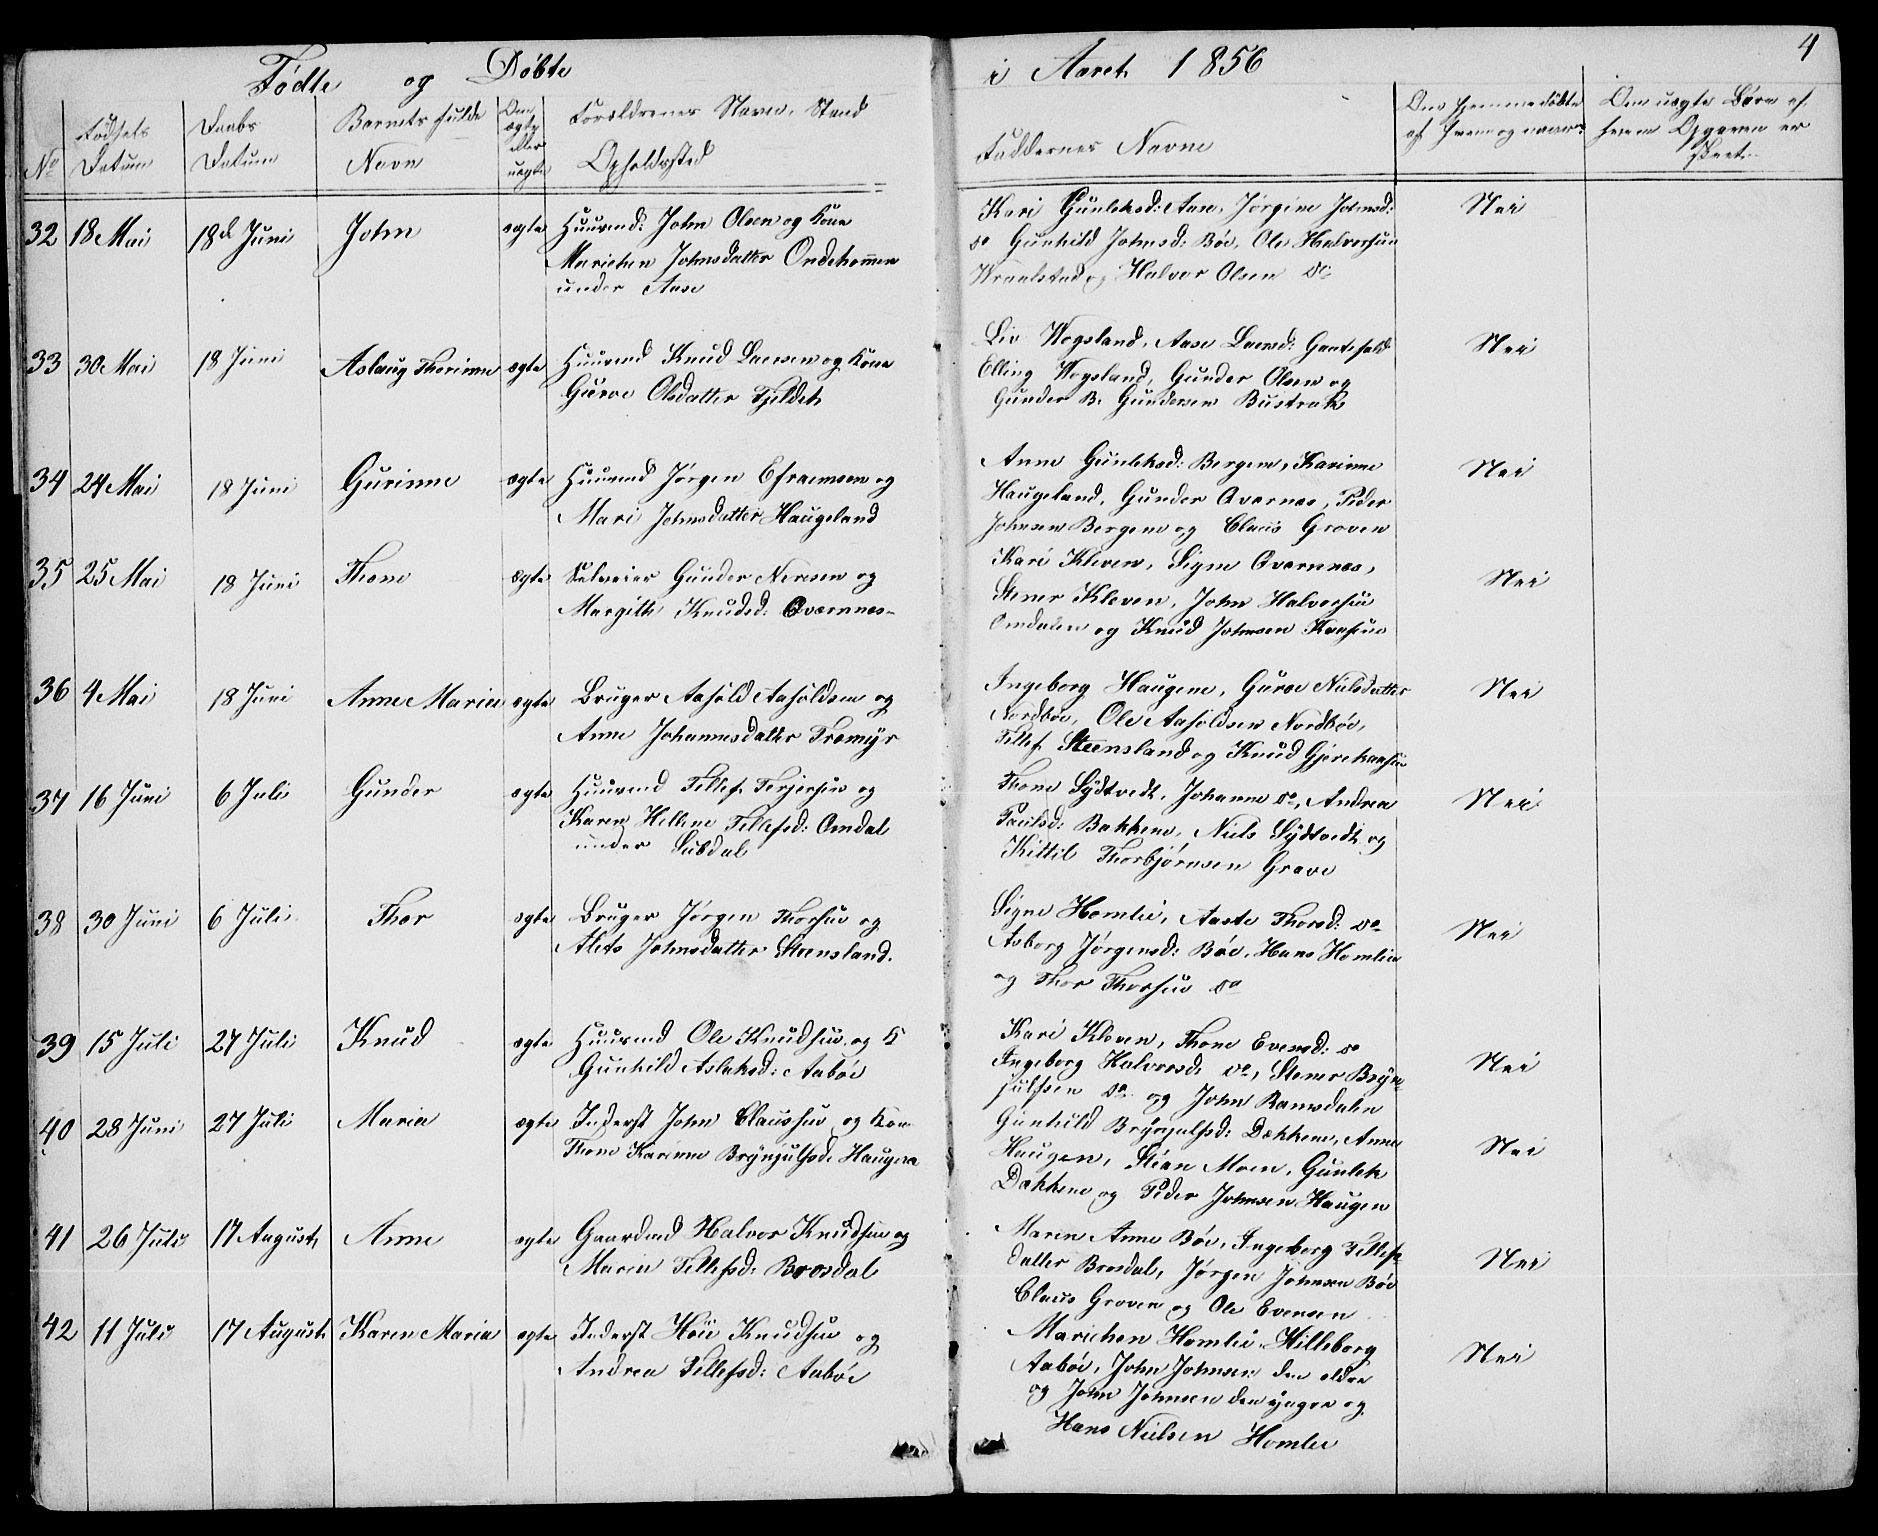 Fødte og Døbte i Aaret 1856
4
No
Fødsels Datum
Daabs Datum
Barnets fulde Navn
Om ægte eller uægte
Forældrenes Navn, Stand
Opholdssted
Faddernes Navne
Om hjemmedøbte
af hvem og naar
Om uægte Børn af
hvem Opgaven er
skeet
32 18 Mai 18d Juni John ægte Huusmd: John Olsen og Kone
Marichen Johnsdatter
under Aase
Kari Gunleksd: Aase, Jørgine Johnsd:
do Gunhild Johnsd: Bøe, Ole Halvorsen
og Halvor Olsen do
Nei
33 30 Mai 18 Juni Aslaug Thorinne ægte Huusmd Knud Larsen og Kone
Guroe Olsdatter Fjeldet
Liv Wegsland, Aase Larsd:
Elling Wegsland, Gunder Olsen og
Gunder B. Gundersen Bustrak
Nei
34 24 Mai 18 Juni Gurinne ægte Huusmd Jørgen Efraimsen og
Mari Johnsdatter Haugeland
Anne Gunleksd: Bergene, Karinne
Haugeland, Gunder Qvernes, Peder
Johnsen Bergene og Claus Groven
Nei
35 25 Mai 18 Juni Thone ægte Selveier Gunder Neresen og
Margith Knudsd: Qvernnes
Kari Kleven, Signe Qvernnes,
Stener Kleven, John Halvorsen
Omdalen og Knud Johnsen
Nei
36 4 Mai 18 Juni Anne Maria ægte Bruger Aasold Aasoldsen og
Anne Johannesdatter Tromyr
Ingeborg Haugene, Guroe Nielsdatter
Nordbøe, Ole Aasoldsen Nordbøe,
Tellef Steensland og Knud
Nei
37 16 Juni 6 Juli Gunder ægte Huusmd Tellef Terjersen og
Karen Hellene Tellefsd: Omdal
under Lusdal
Thone Lydtvedt, Johanne do, Andrea
Paulsd: Bakkene, Niels Lydtvedt og
Kittil Thorbjørnsen Grave
Nei
38 30 Juni 6 Juli Thor ægte Bruger Jørgen Thorsen og
Alets Johnsdatter Steensland.
Signe Homlie, Aaste Thorsd: do
Asborg Jørgensd: Bøe, Hans Homlie
og Thor Thorsen do
Nei
39 15 Juli 27 Juli Knud ægte Huusmd Ole Knudsen og K
Gunhild Aslaksd: Aabøe
Kari Kleven, Thone Evensd: do
Ingeborg Halvorsd: do, Stener Bryn-
julfsen do og John Ramsdalen
Nei
40 28 Juni 27 Juli Maria ægte Inderst John Claussen og Kone
Thone Karinne Brynjulfsd: Haugene
Gunhild Brynjulfsd: Dokkene, Anne
Haugen, Stian Moen, Gunlek
Dokkene og Peder Johnsen Haugen
Nei
41 26 Juli 17 August Anne ægte Gaardmd Halvor Knudsen og
Maria Tellefsd: Brosdal
Maren Anne Bøe, Ingeborg Tellefs-
datter Brosdal, Jørgen Johnsen Bøe
Claus Groven og Ole Evensen
Nei
42 11 Juli 17 August Karen Maria ægte Inderst Høie Knudsen og
Andrea Tellefsd: Aabøe
Marichen Homlie, Hilleborg
Aabøe, John Johnsen den eldre
og John Johnsen den yngre og
Hans Nielsen Homlie
Nei